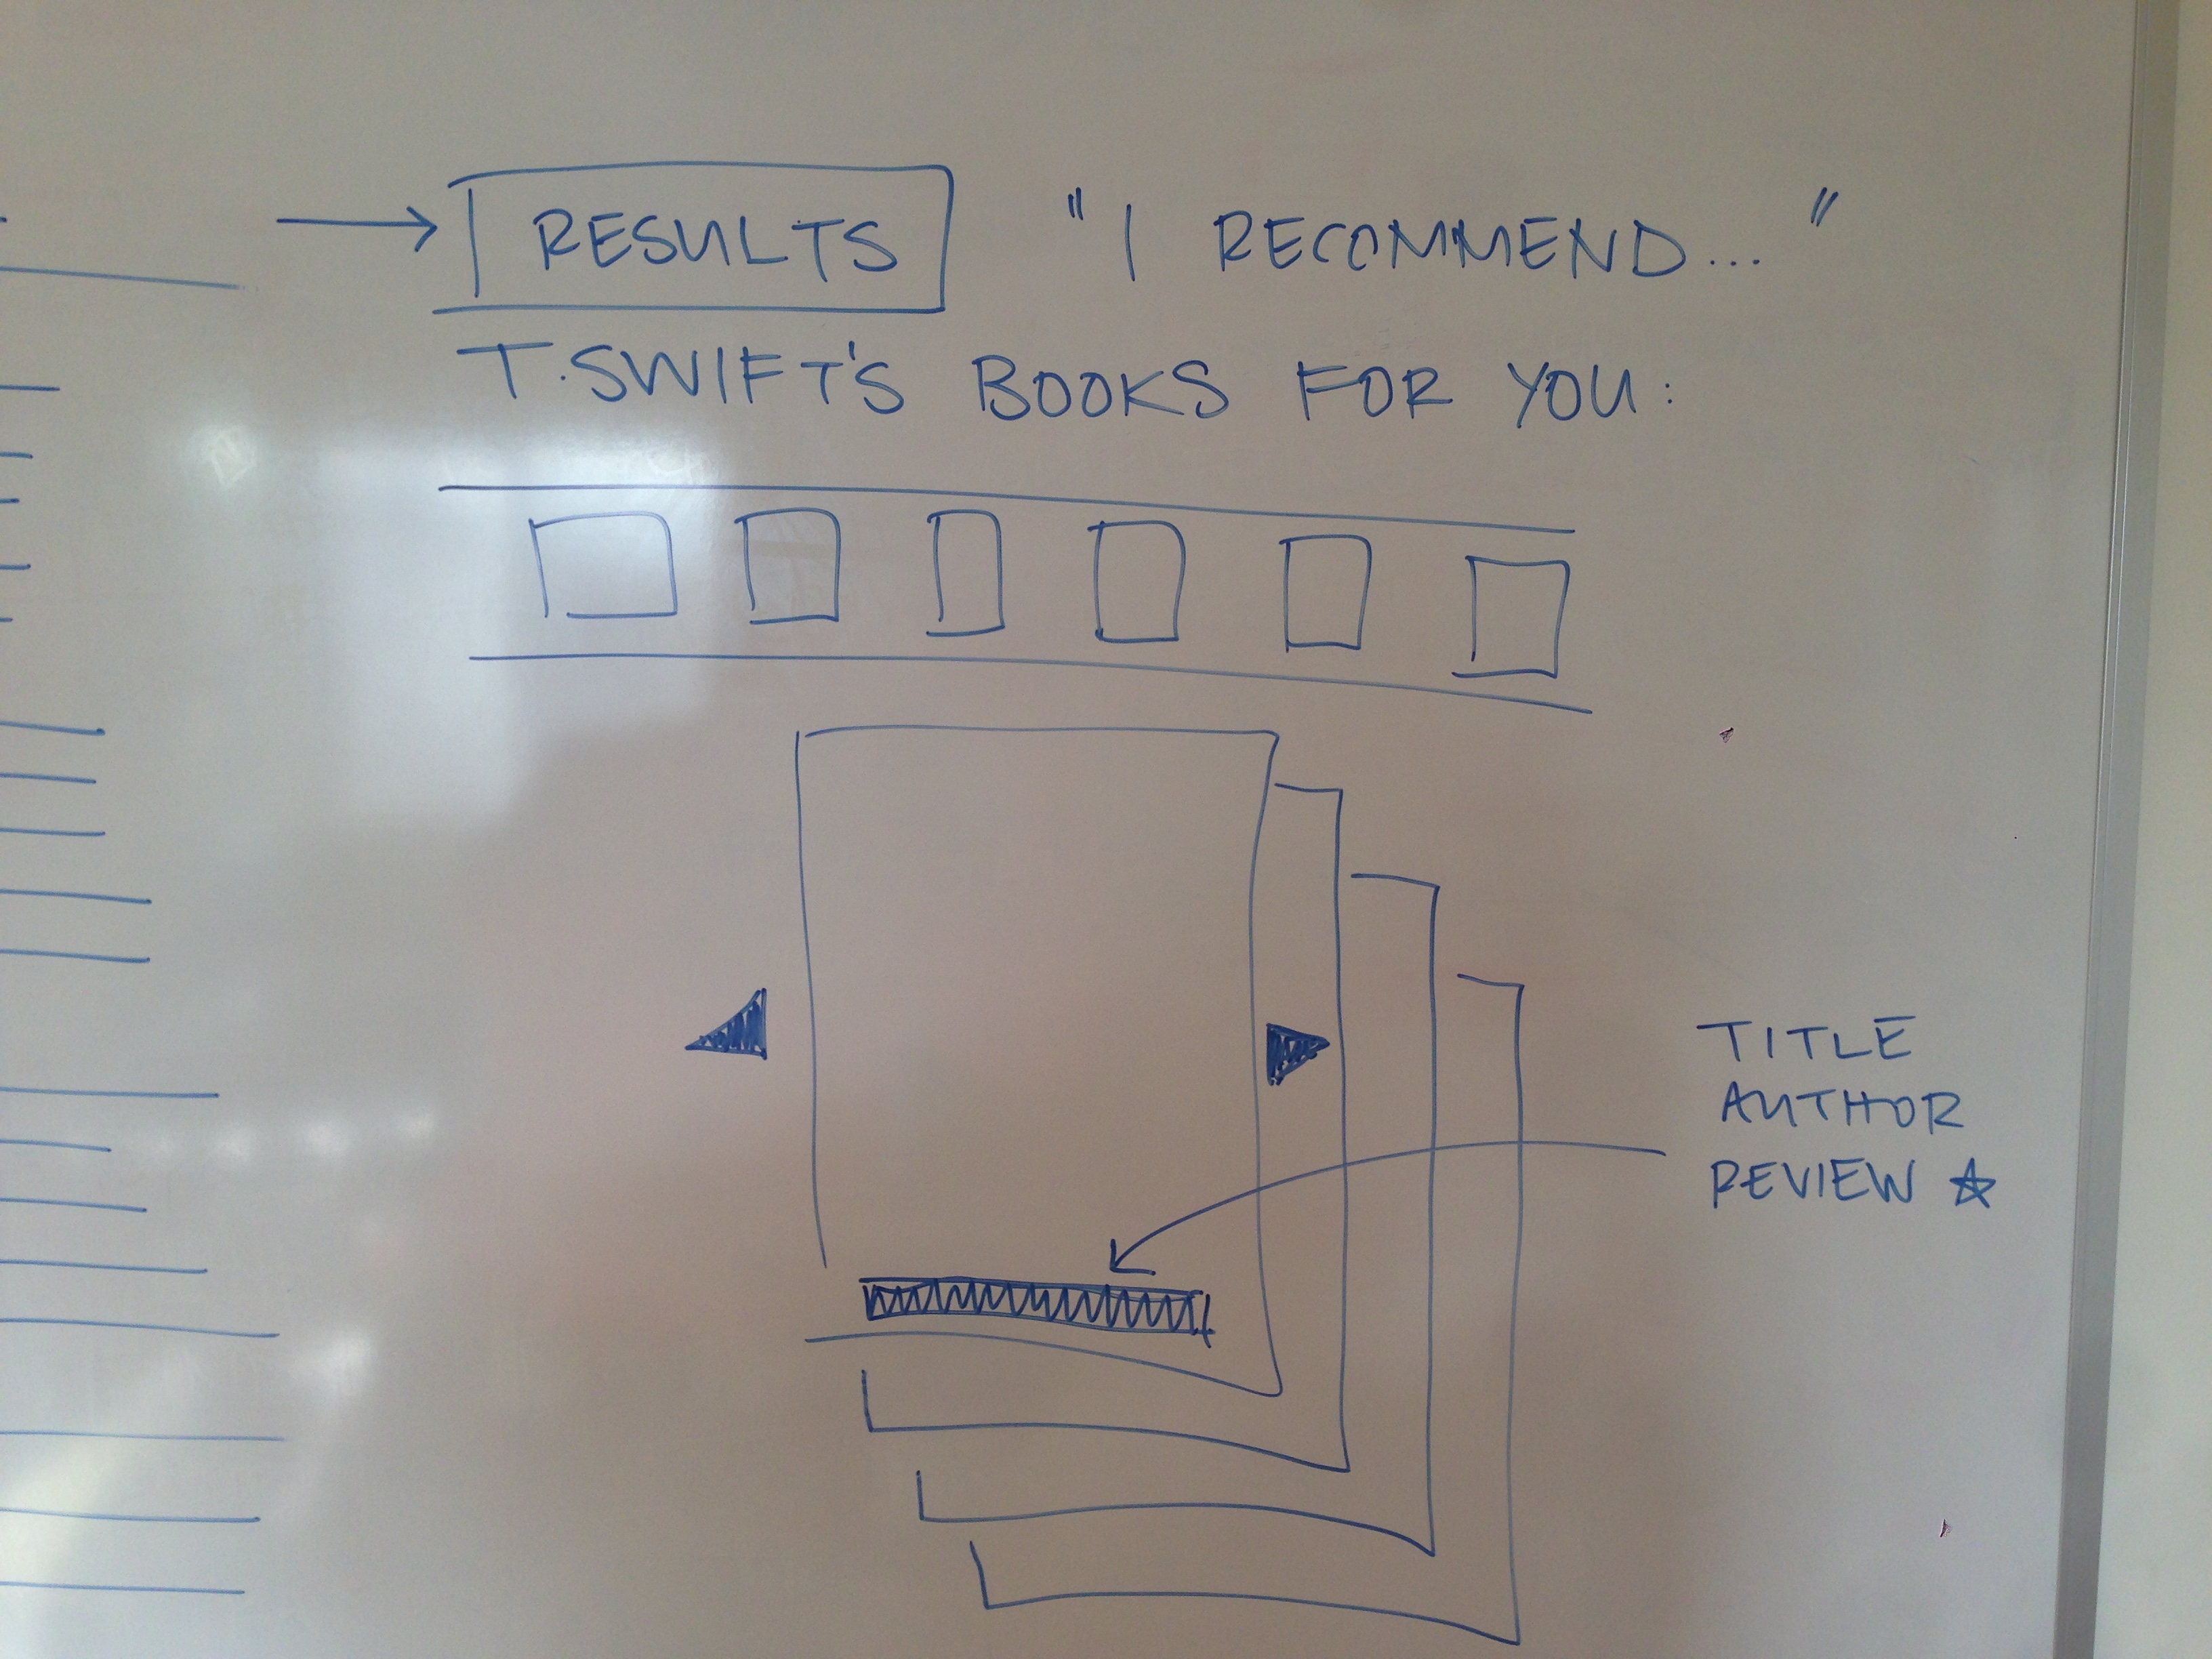 RESULTS "I RECOMMEND..."
T.SWIFT'S BOOKS FOR YOU:
TITLE
AUTHOR
REVIEW ☆